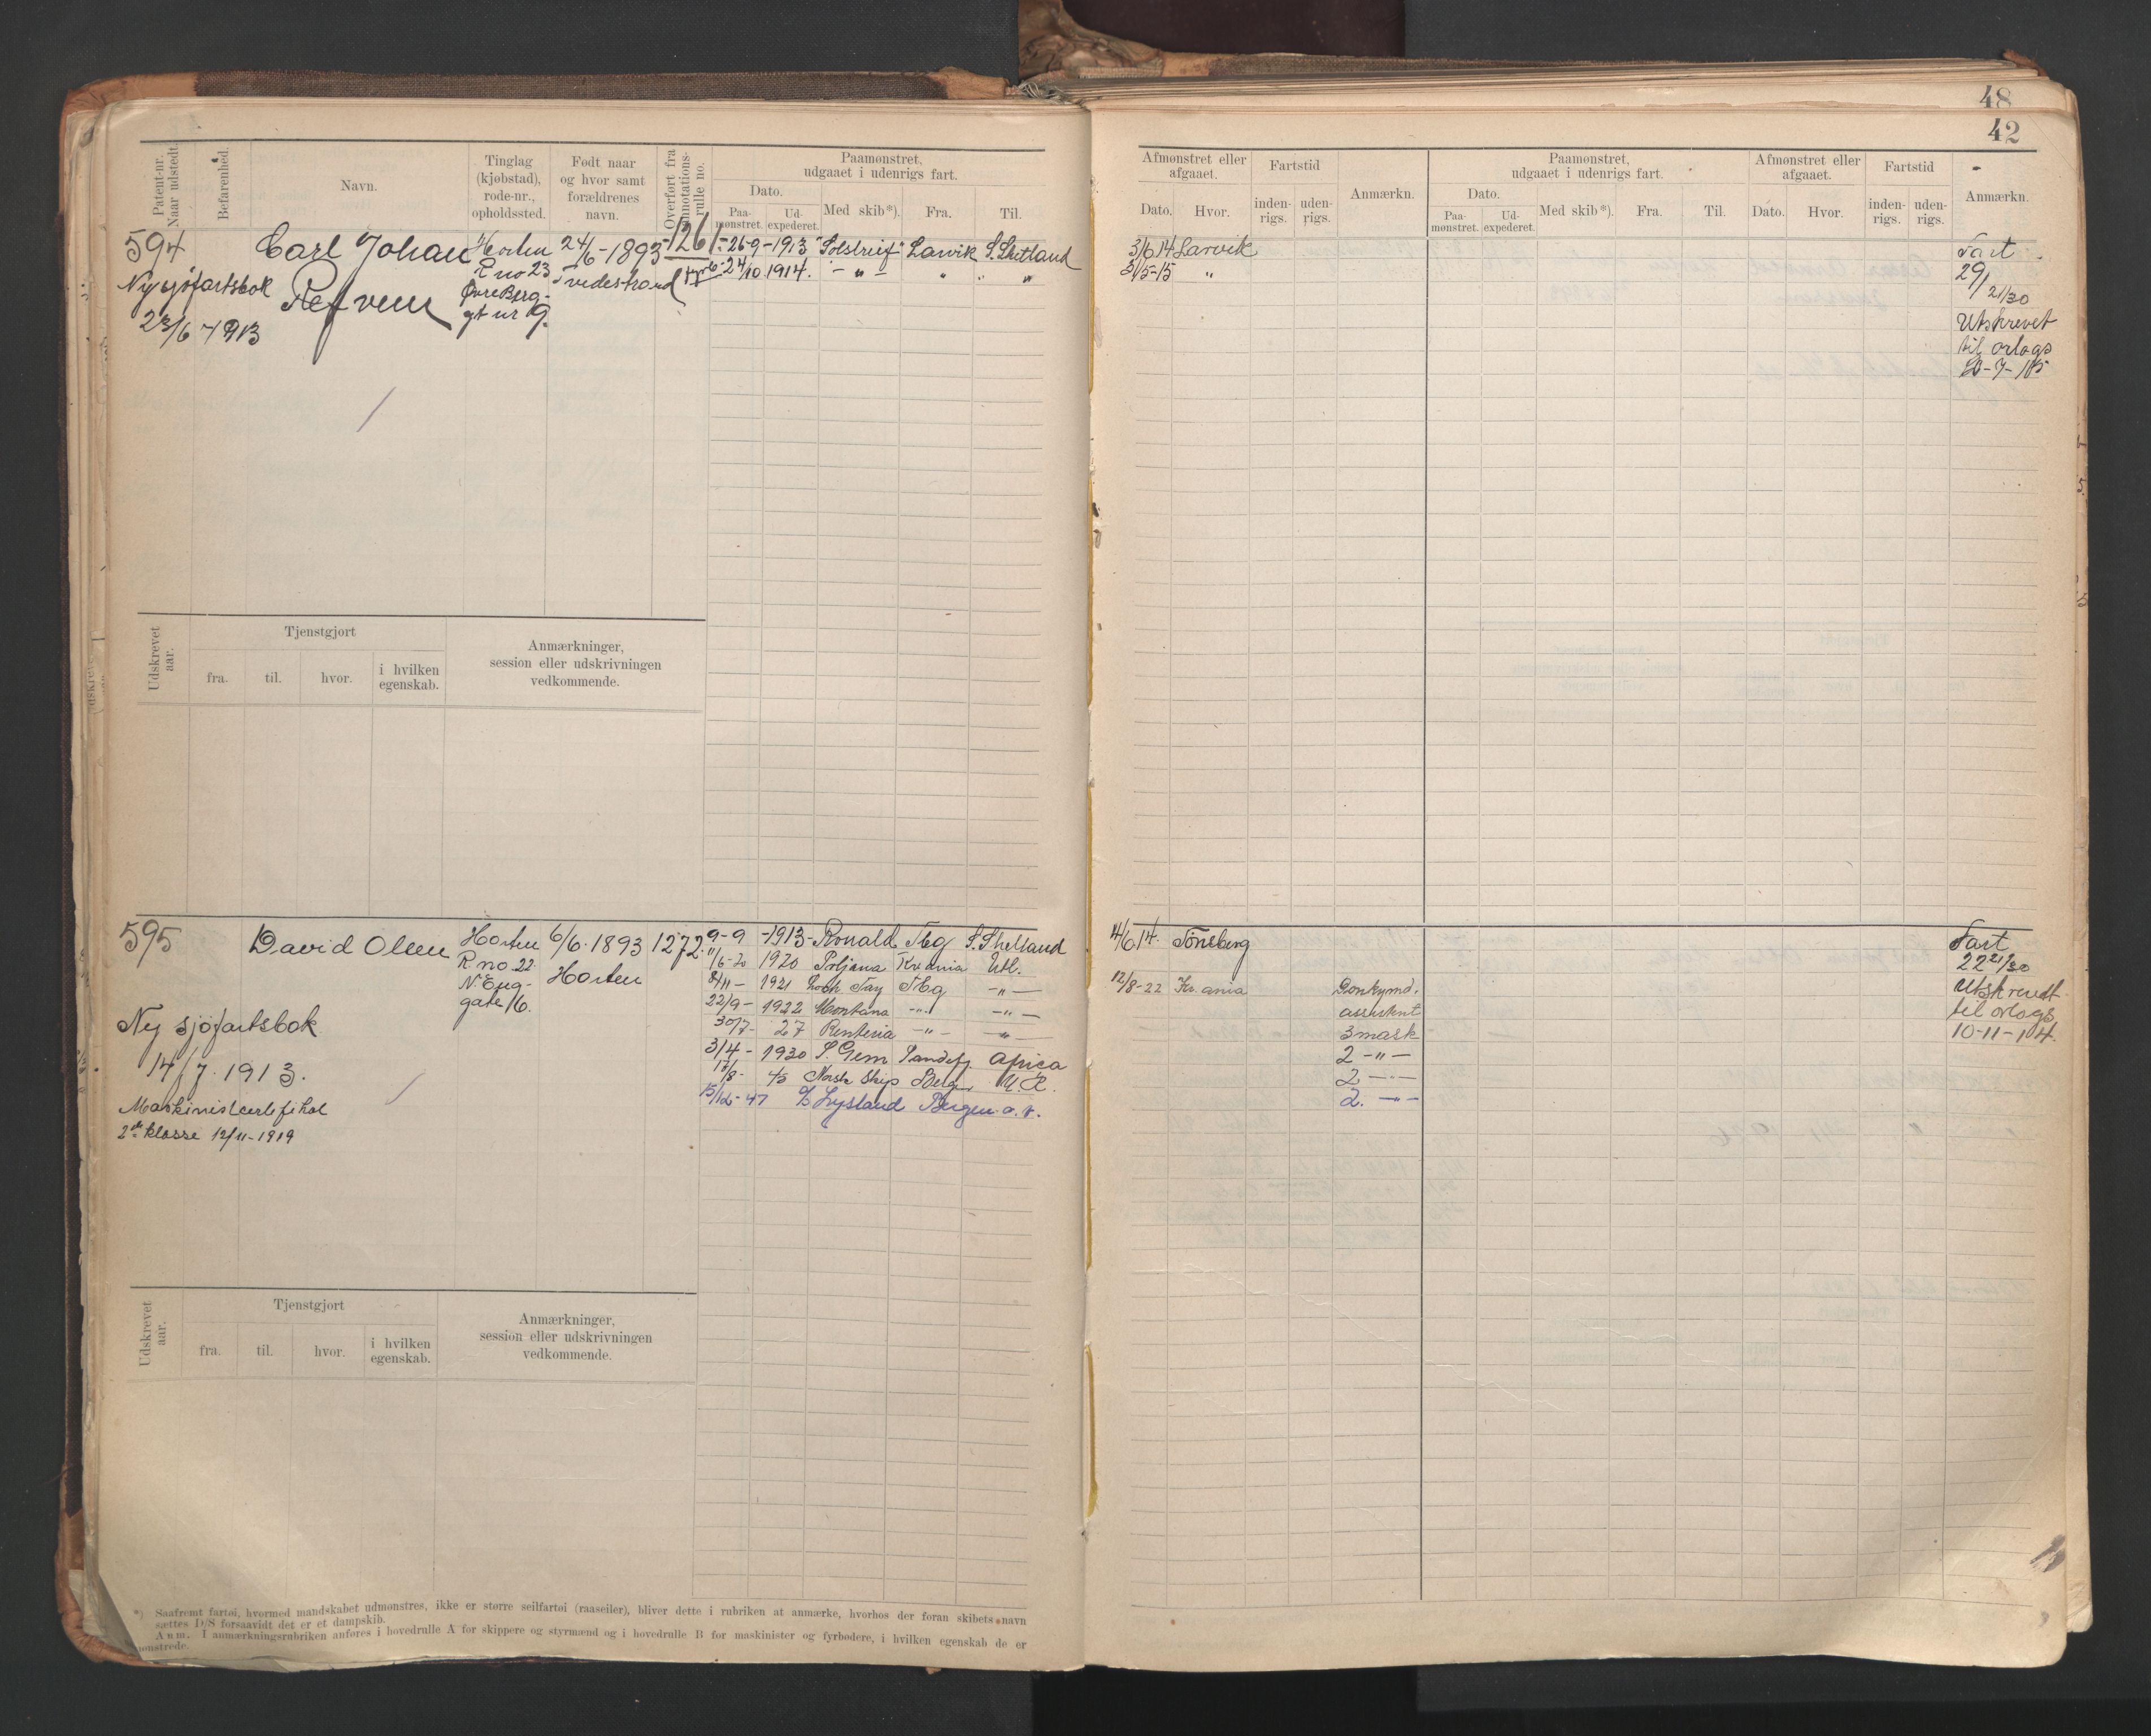 48
42
Patent-nr. Naar udstedt.
Befarenhed.
Navn.
Tinglag (kjøbstad), rode-nr., opholdssted.
Født naar og hvor samt forældrenes navn.
Overført fra annotations-rulle no.
Paamønstret, udgaaet i udenrigs fart.
Dato.
Paa-mønstret.
Ud-expederet.
Med skib*).
Fra.
Til.
Afmønstret eller afgaaet.
Dato.
Hvor.
Fartstid
inden-rigs.
uden-rigs.
Anmærkn.
Paamønstret, udgaaet i udenrigs fart.
Dato.
Paa-mønstret.
Ud-expederet.
Med skib*).
Fra.
Til.
Afmønstret eller afgaaet.
Dato.
Hvor.
Fartstid
inden-rigs.
uden-rigs.
Anmærkn.
594 Carl Johan Horten 24/6-1893 1261 26-9-1913 "Solstreif" Larvik S. Shetland
R no 23 Tvedestrand 24/10 1914. - " - " "
Ny sjøfartsbok Refvem Øvre Berg-
gt nr 9.
23/6 1913
3/6 14 Larvik
3/5-15 "
Fart
29/
21/30
Utskrevet
til orlogs
Udskrevet aar.
Tjenstgjort
fra.
til.
hvor.
i hvilken egenskab.
Anmærkninger, session eller udskrivningen vedkommende.
595 David Olsen Horten 6/6. 1893 1272. 9-9 -1913- Ronald Tbg S. Shetland
R no 22. Horten 11/6-20 1920 Poljana Kr.ania Utl.
N. Eng- 8/11- 1921 Loch Tay Tbg -"-
gate 16. 22/9- 1922 Montana -"- -"-
Ny sjøfartsbok 30/7- 27 Renteria -"- -"-
14/7. 1913. 3/4- 1930 S. Gem Sandefj. Africa
/8- 45 Norsk Skip Bergen U.K.
Maskinistcertifikat 15/12-47 Lysland Bergen
2den klasse 12/11-1919
4/6 14. Tönsberg
12/8-22 Kr.ania Donkymd.
assistent
3 mask
2 -"-
2 -"-
2. -"-
Fart
22 21/30
Utskrevet
til orlogs
10-11-14.
Udskrevet aar.
Tjenstgjort
fra.
til.
hvor.
i hvilken egenskab.
Anmærkninger, session eller udskrivningen vedkommende.
*) Saafremt fartøi, hvormed mandskabet udmønstres, ikke er større seilfartøi (raaseiler), bliver dette i rubriken at anmærke, hvorhos der foran skibets navn
sættes D/S forsaavidt det er et dampskib.
Anm. I anmærkningsrubriken anføres i hovedrulle A for skippere og styrmænd og i hovedrulle B for maskinister og fyrbødere, i hvilken egenskab de er
mønstrede.